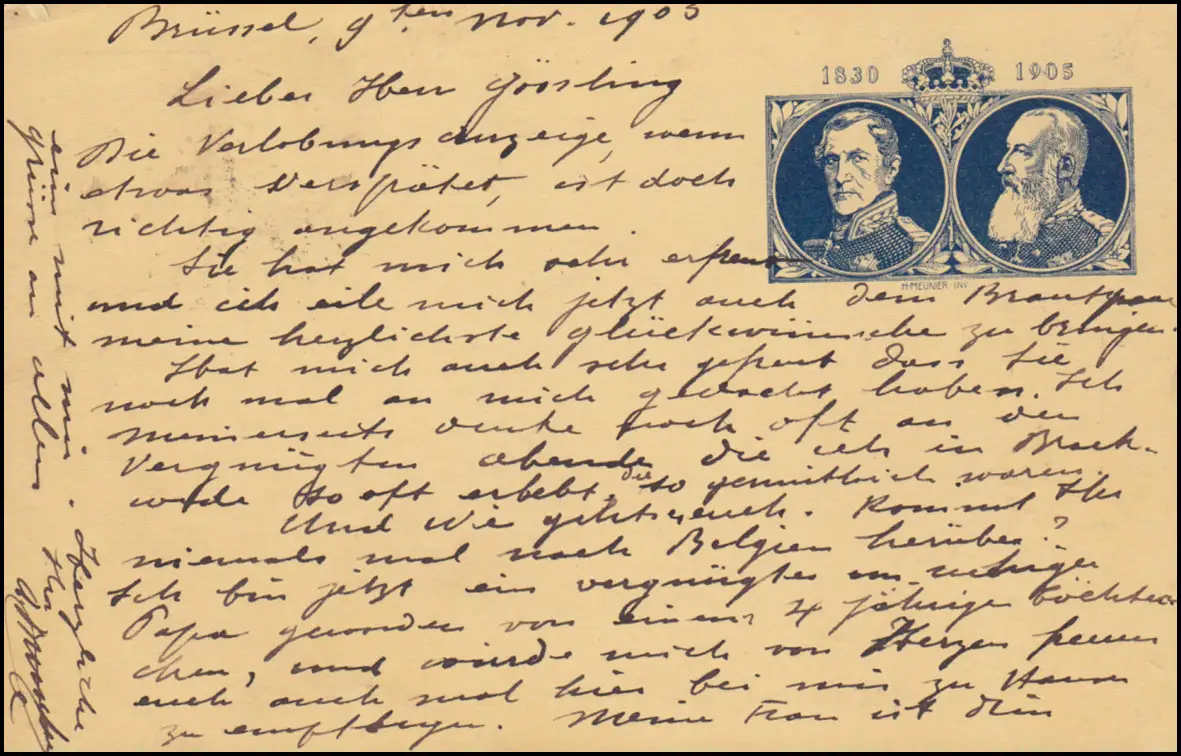 Brüssel, 9ten Nov. 1905
1830 1905
Lieber Herr Gössling
Die Verlobungsanzeige, wenn
etwas verspätet, ist doch
richtig angekommen.
Sie hat mich sehr erfreut
H·MEUNIER·INV
und ich eile mich jetzt auch dem Brautpaar
meine herzlichste Glückwünsche zu bringen.
Hat mich auch sehr gefreut dass Sie
noch mal an mich gedacht haben. Ich
meinerseits denke noch oft an den
vergnügten abende die ich in Brack-
wede so oft erlebt, die so gemütlich waren.
Und wie geht's euch. Kommt Ihr
niemals mal nach Belgien herüber?
Ich bin jetzt ein vergnügter
Papa geworden von einem 4 jährigen Töchter-
chen, und würde mich von Herzen freuen
euch auch mal hier bei mir zu Hause
zu empfangen. Meine Frau ist drin
ein mit mir. Herzliche
grüsse an allen Ihr